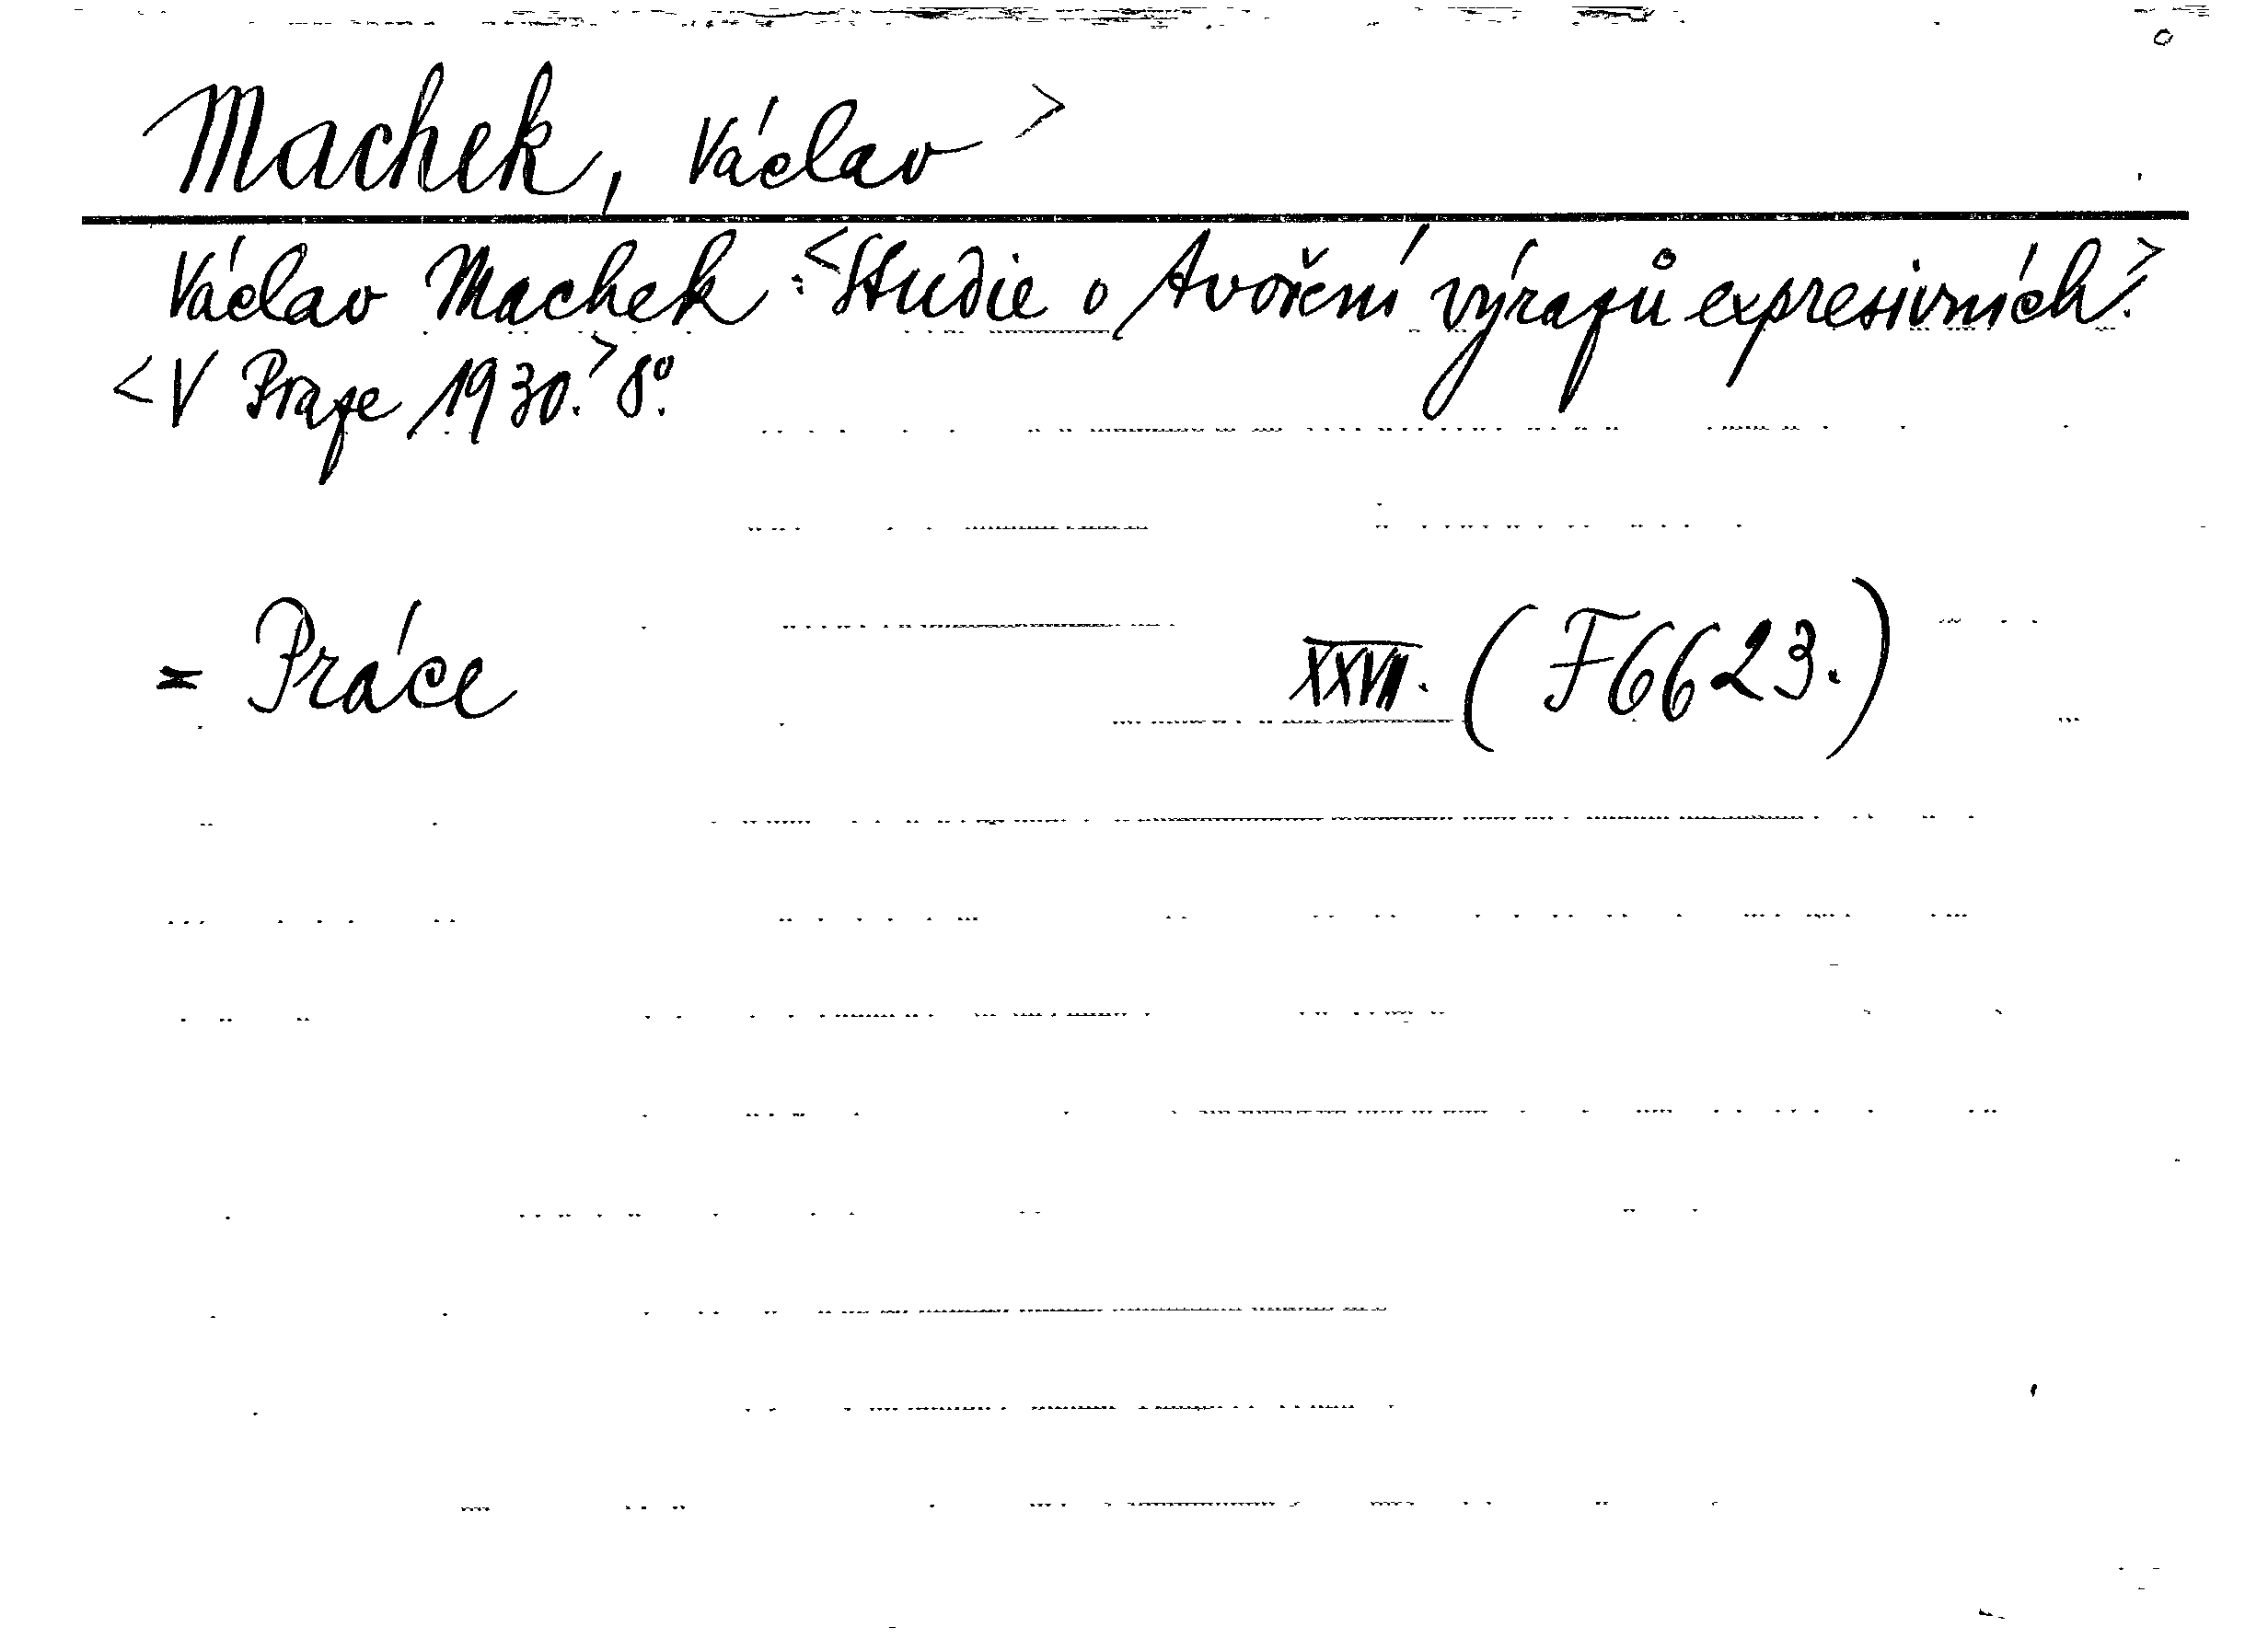 Machek, Václav >
Václav Machek : <Studie o tvoření výrazů expresivních.>
<V Praze 1930.> 8º.
= Práce XXVII. (F6623.)